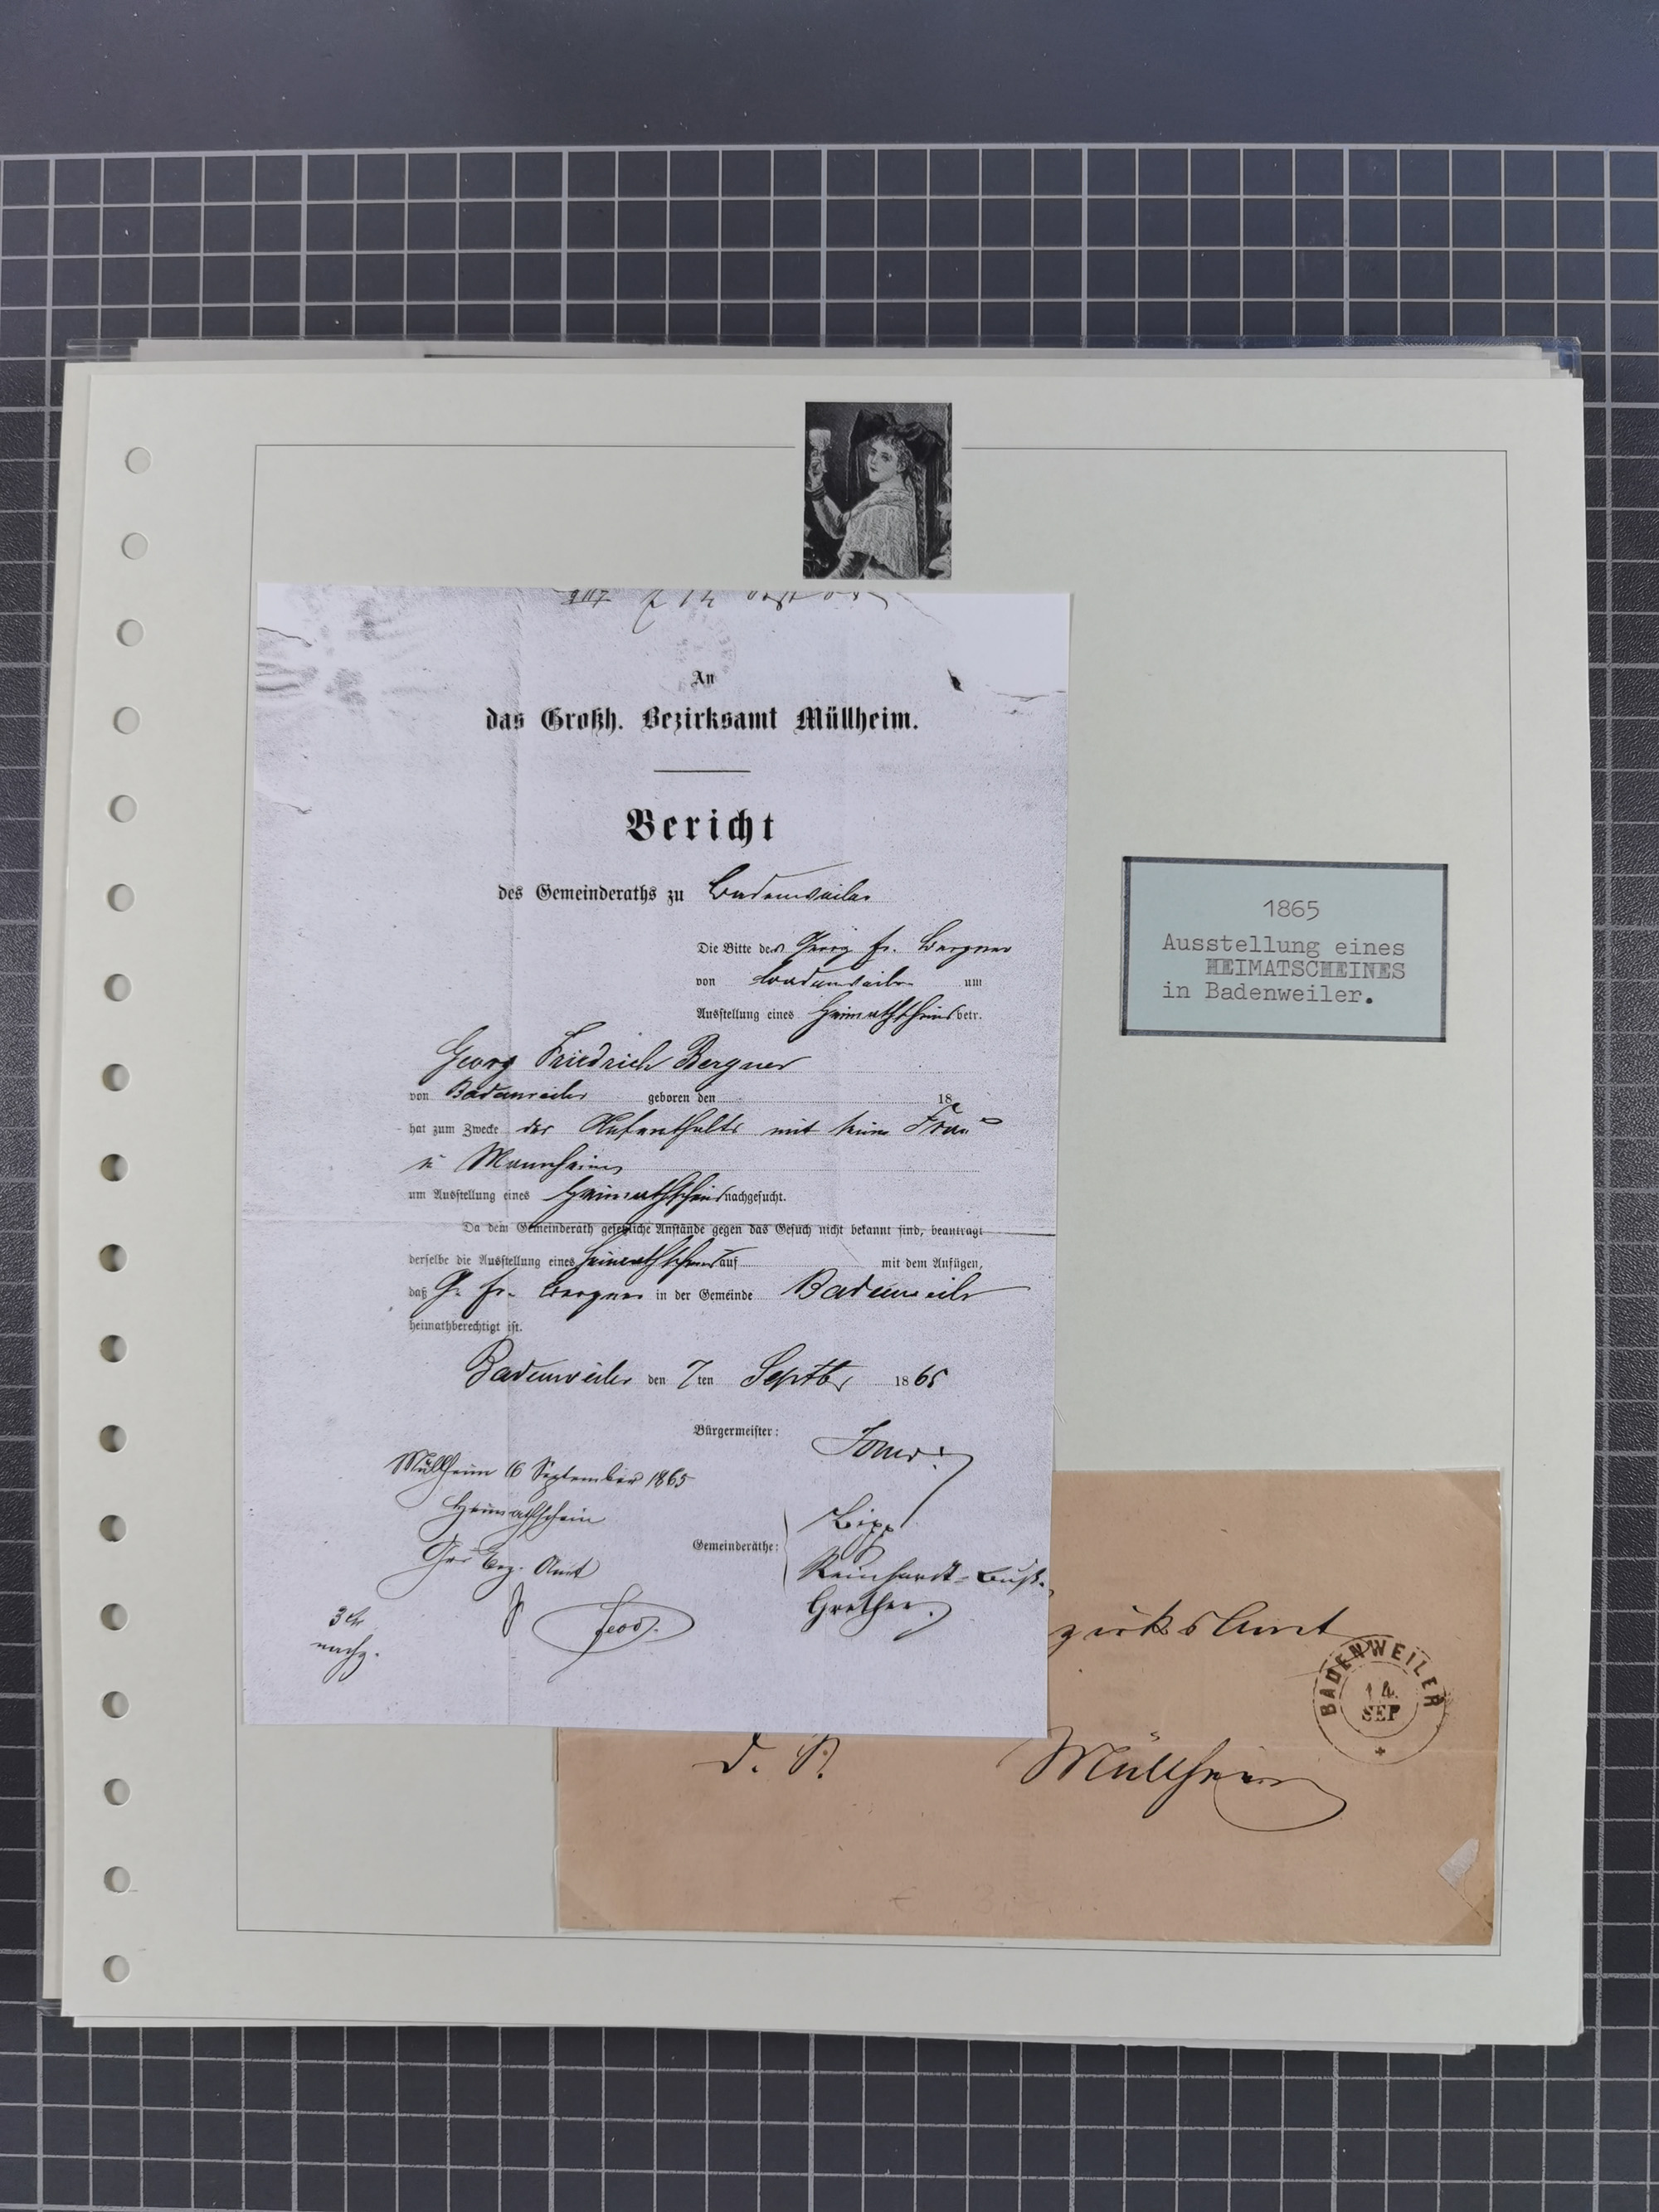 An
das Großh. Bezirksamt Müllheim.
Bericht
des Gemeinderaths zu Badenweiler
Die Bitte des Georg Fr. Bergner
von Badenweiler um
Ausstellung eines Heimathscheins betr.
Georg Friedrich Bergner
von Badenweiler geboren den 18
hat zum Zwecke des Aufenthalts mit seiner Frau
in Mannheim
um Ausstellung eines Heimathscheins nachgesucht.
Da dem Gemeinderath gesetzliche Anstände gegen das Gesuch nicht bekannt sind, beantragt
derselbe die Ausstellung eines Heimathscheins auf mit dem Anfügen,
daß G. Fr. Bergner in der Gemeinde Badenweiler
heimathberechtigt ist.
Badenweiler den 7ten Septbr 1865
Bürgermeister:
Müllheim 16 September 1865
Heimathschein
Gr. Bez. Amt
Gemeinderäthe:
Reinhardt
Grether
1865
Ausstellung eines
HEIMATSCHEINES
in Badenweiler.
zirksamt
BADENWEILER
14
SEP
D. S.
Müllheim